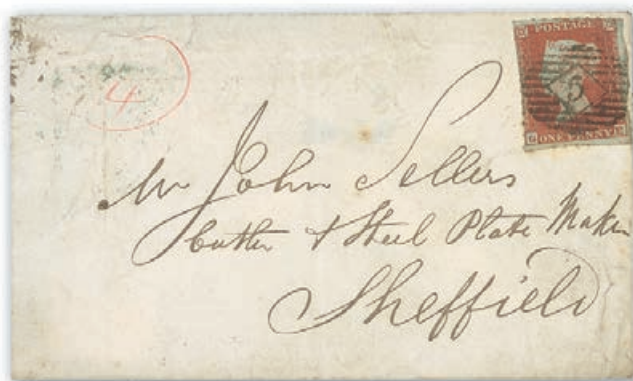 4
POSTAGE
6
ONE PENNY
Mr John Sellers
Cutler & Steel Plate Maker
Sheffield